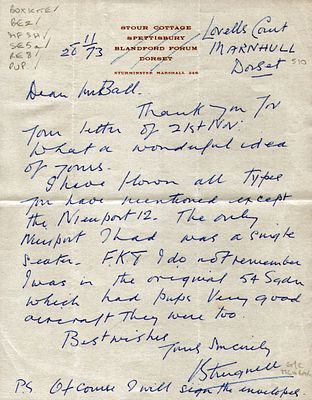 BOXKITE/
BE2/
MFSH/
SE5a/
RE8/
PUP/
STOUR COTTAGE
SPETTISBURY
BLANDFORD FORUM
DORSET
STURMINSTER MARSHALL 246
26 11/73
Lovells Court
MARNHULL
Dorset
Dear Mr Ball.
Thank you for
your letter of 21st Nov:
What a wonderful idea
of yours.
I have flown all types
you have mentioned except
the Nieuport 12. The only
Nieuport I had was a single
seater. F.K.7 I do not remember
I was in the original 54 Sqdn
which had pups Very good
aircraft They were too.
Best wishes
Yours Sincerely
Strugnell
P.S Of course I will sign the envelopes.